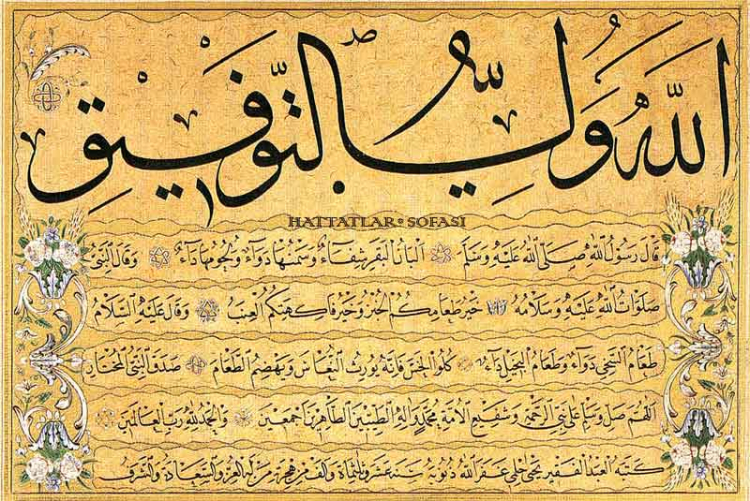 الله ولي التوفيق
HATTATLAR • SOFASI
قال رسول الله صلى الله عليه وسلم البان البقر شفاء وسمنها دواء ولحومها داء وقال النبي
صلوات الله عليه وسلامه خير طعامكم الخبز وخير فاكهتكم العنب وقال عليه السلام
طعام السخي دواء وطعام البخيل داء كلوا الخس فانه يورث النعاس ويهضم الطعام صدق النبي المختار
اللهم صل وسلم على نبي الرحمة وشفيع الامة محمد واله الطيبين الطاهرين اجمعين والحمد لله رب العالمين
كتبه العبد الفقير يحيى حلمي غفر الله ذنوبه سنة عشر وثلثمائة والف من هجرة من له العز والسعادة والشرف